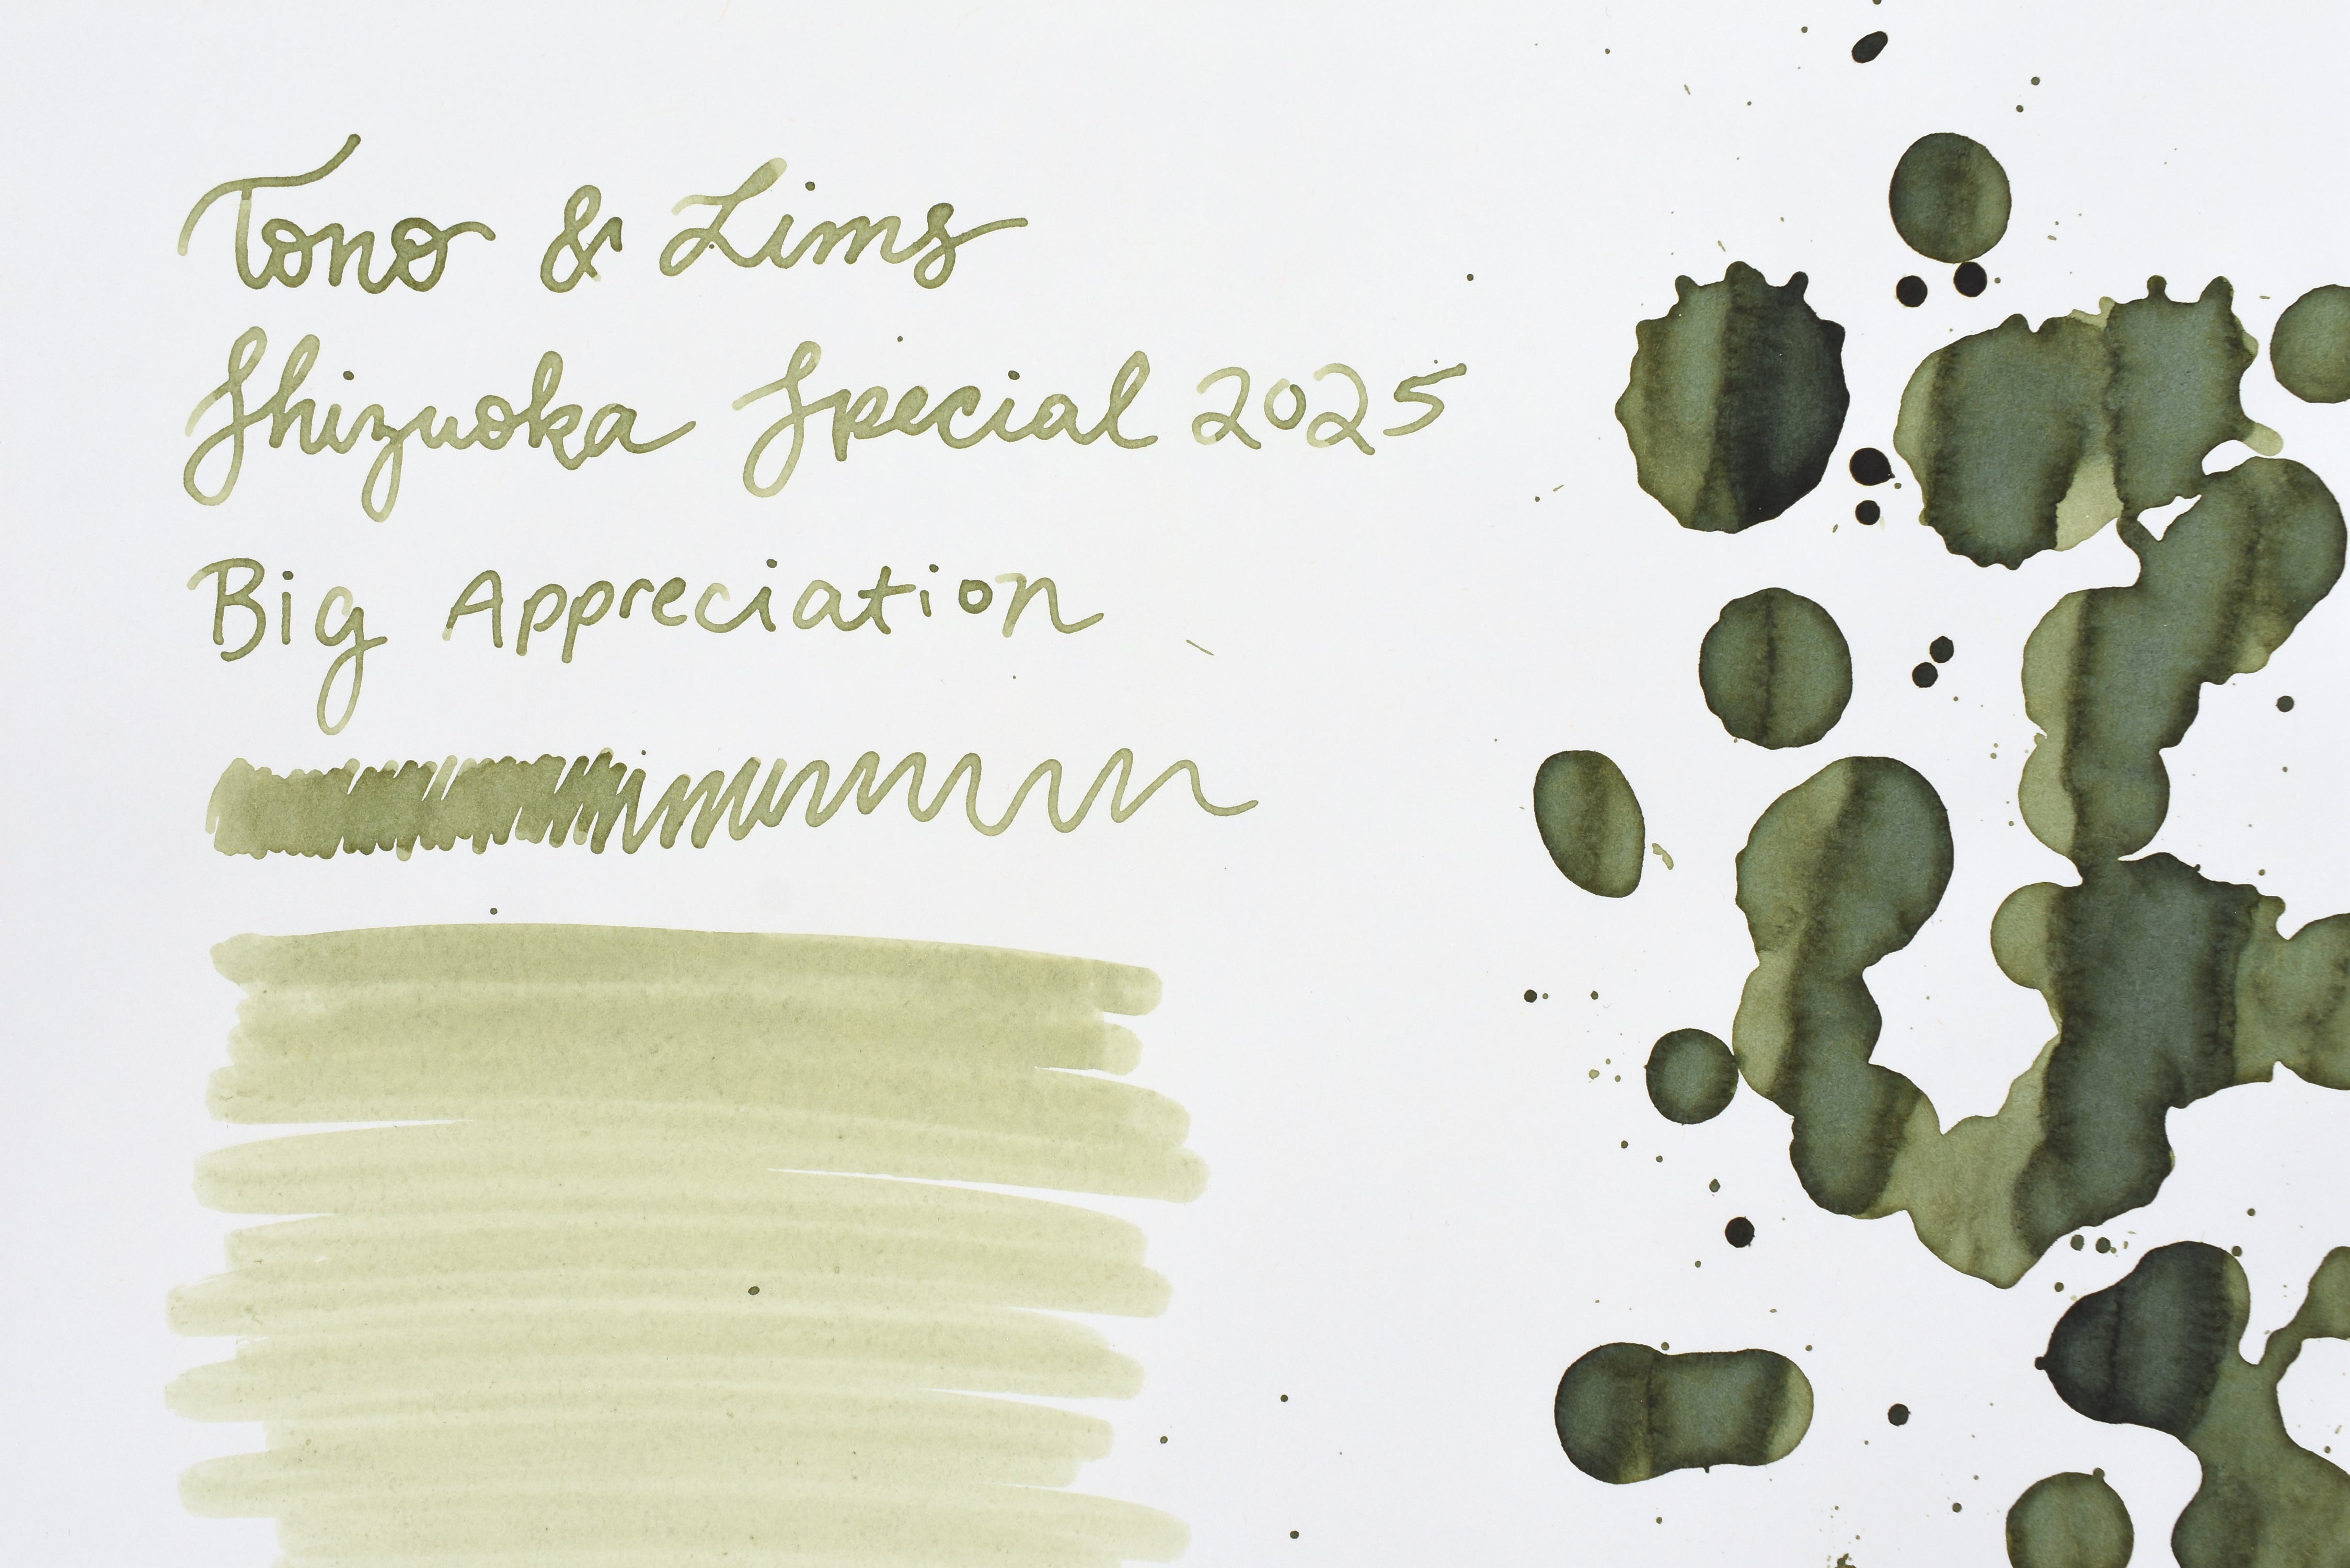 Tono & Lims
Shizuoka Special 2025
Big Appreciation